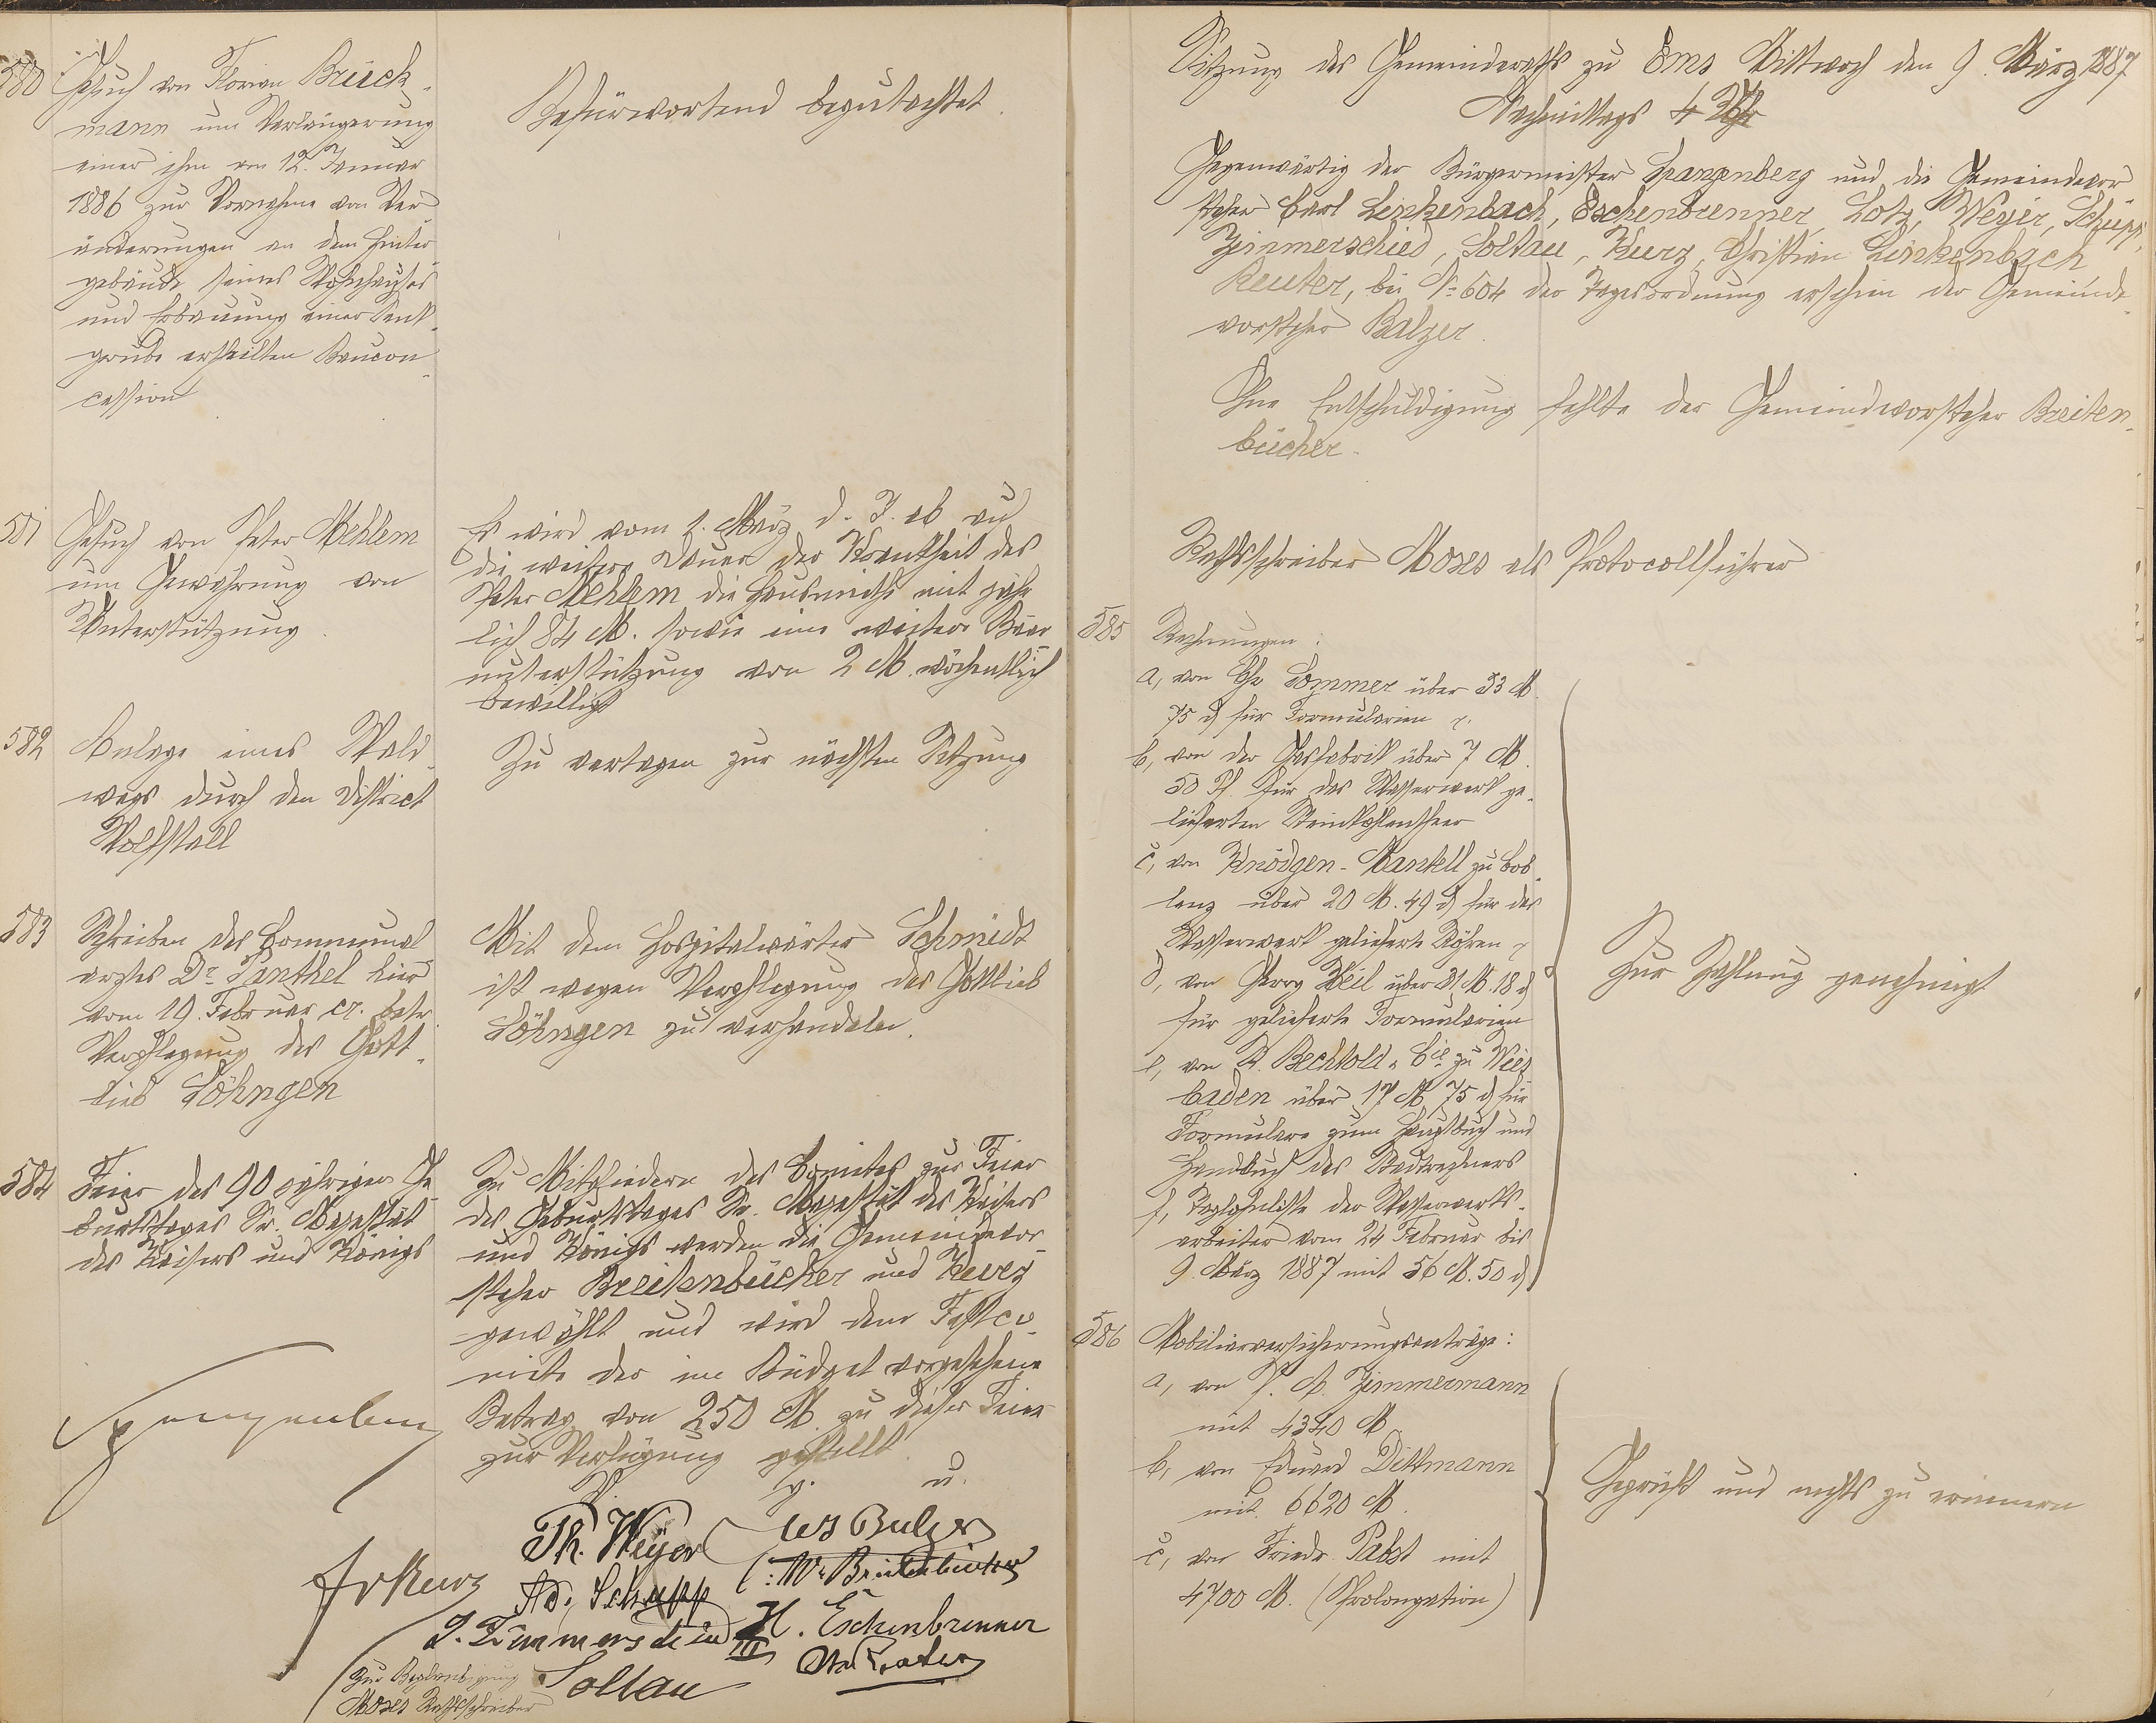 580
Gesuch von Florian Brück-
mann um Verlängerung
einer ihm am 12. Januar
1886 zur Vornahme von Ver-
änderungen an dem Hinter-
gebäude seines Wohnhauses
und Erbauung einer Senk-
grube ertheilten Baucon-
cession
Befürwortend begutachtet.
581
Gesuch von Peter Mehlem
um Gewährung von
Unterstützung.
Es wird vom 1. März d. J. ab auf
die weitere Dauer der Krankheit des
Peter Mehlem die Hausmiethe mit jähr-
lich 84 M. sowie eine weitere Baar-
unterstützung von 2 M. wöchentlich
bewilligt
582
Anlage eines Wald-
wegs durch den District
Wolfstall
Zu vertagen zur nächsten Sitzung
583
Schreiben des Communal-
arztes Dr. Panthel hier
vom 19. Februar cr. betr.
Verpflegung des Gott-
lieb Söhngen
Mit dem Hospitalwärter Schmidt
ist wegen Verpflegung des Gottlieb
Söhngen zu verhandeln.
584
Feier des 90 jährigen Ge-
burtstages Sr. Majestät
des Kaisers und Königs
Zu Mitgliedern des Comites zur Feier
des Geburtstages Sr. Majestät des Kaisers
und Königs werden die Gemeindevor-
steher Breitenbücher und Kurz
gewählt und wird dem Festco-
mite der im Budget vorgesehene
Betrag von 250 M. zu dieser Feier
zur Verfügung gestellt.
v. g. u.
Spangenberg
Th. Weyer
Balzer
Fr Kurz
Ad. Schupp
W. Breitenbücher
J. Zimmerschied III
H. Eschenbrenner
Soltau
Chr. Reuter
Zur Beglaubigung
Moses Rathsschreiber
Sitzung des Gemeinderaths zu Ems Mittwoch den 9. März 1887
Nachmittags 4 Uhr
Gegenwärtig der Bürgermeister Spangenberg und die Gemeindevor-
steher Carl Linkenbach, Eschenbrenner, Lotz, Weyer, Schupp,
Zimmerschied, Soltau, Kurz, Christian Linkenbach,
Reuter, bei № 604 der Tagesordnung erschien der Gemeinde-
vorsteher Balzer.
Ohne Entschuldigung fehlte der Gemeindevorsteher Breiten-
bücher.
Rathsschreiber Moses als Protocollführer
585
Rechnungen:
a, von Chr Sommer über 33 M.
75 d für Formularien p.
b, von der Gasfabrik über 7 M.
50 Pf für das Wasserwerk ge-
lieferten Steinkohlentheer
c, von Knödgen-Mantell zu Cob-
lenz über 20 M. 49 d für das
Wasserwerk gelieferte Röhren p
d, von Georg Heil über 31 M. 18 d
für gelieferte Formularien
e, von R. Bechtold & Cie zu Wies-
baden über 17 M. 75 d für
Formulare zum Hauptbuch und
Handbuch des Stadtrechners
f, Taglohnliste der Wasserwerks-
arbeiter vom 24 Februar bis
9. März 1887 mit 56 M. 50 d
Zur Zahlung genehmigt
586
Mobiliarversicherungsanträge:
a, von P. A. Zimmermann
mit 4340 M.
b, von Eduard Dittmann
mit 6620 M.
c, von Friedr. Pabst mit
4700 M. (Prolongation)
Geprüft und nichts zu erinnern